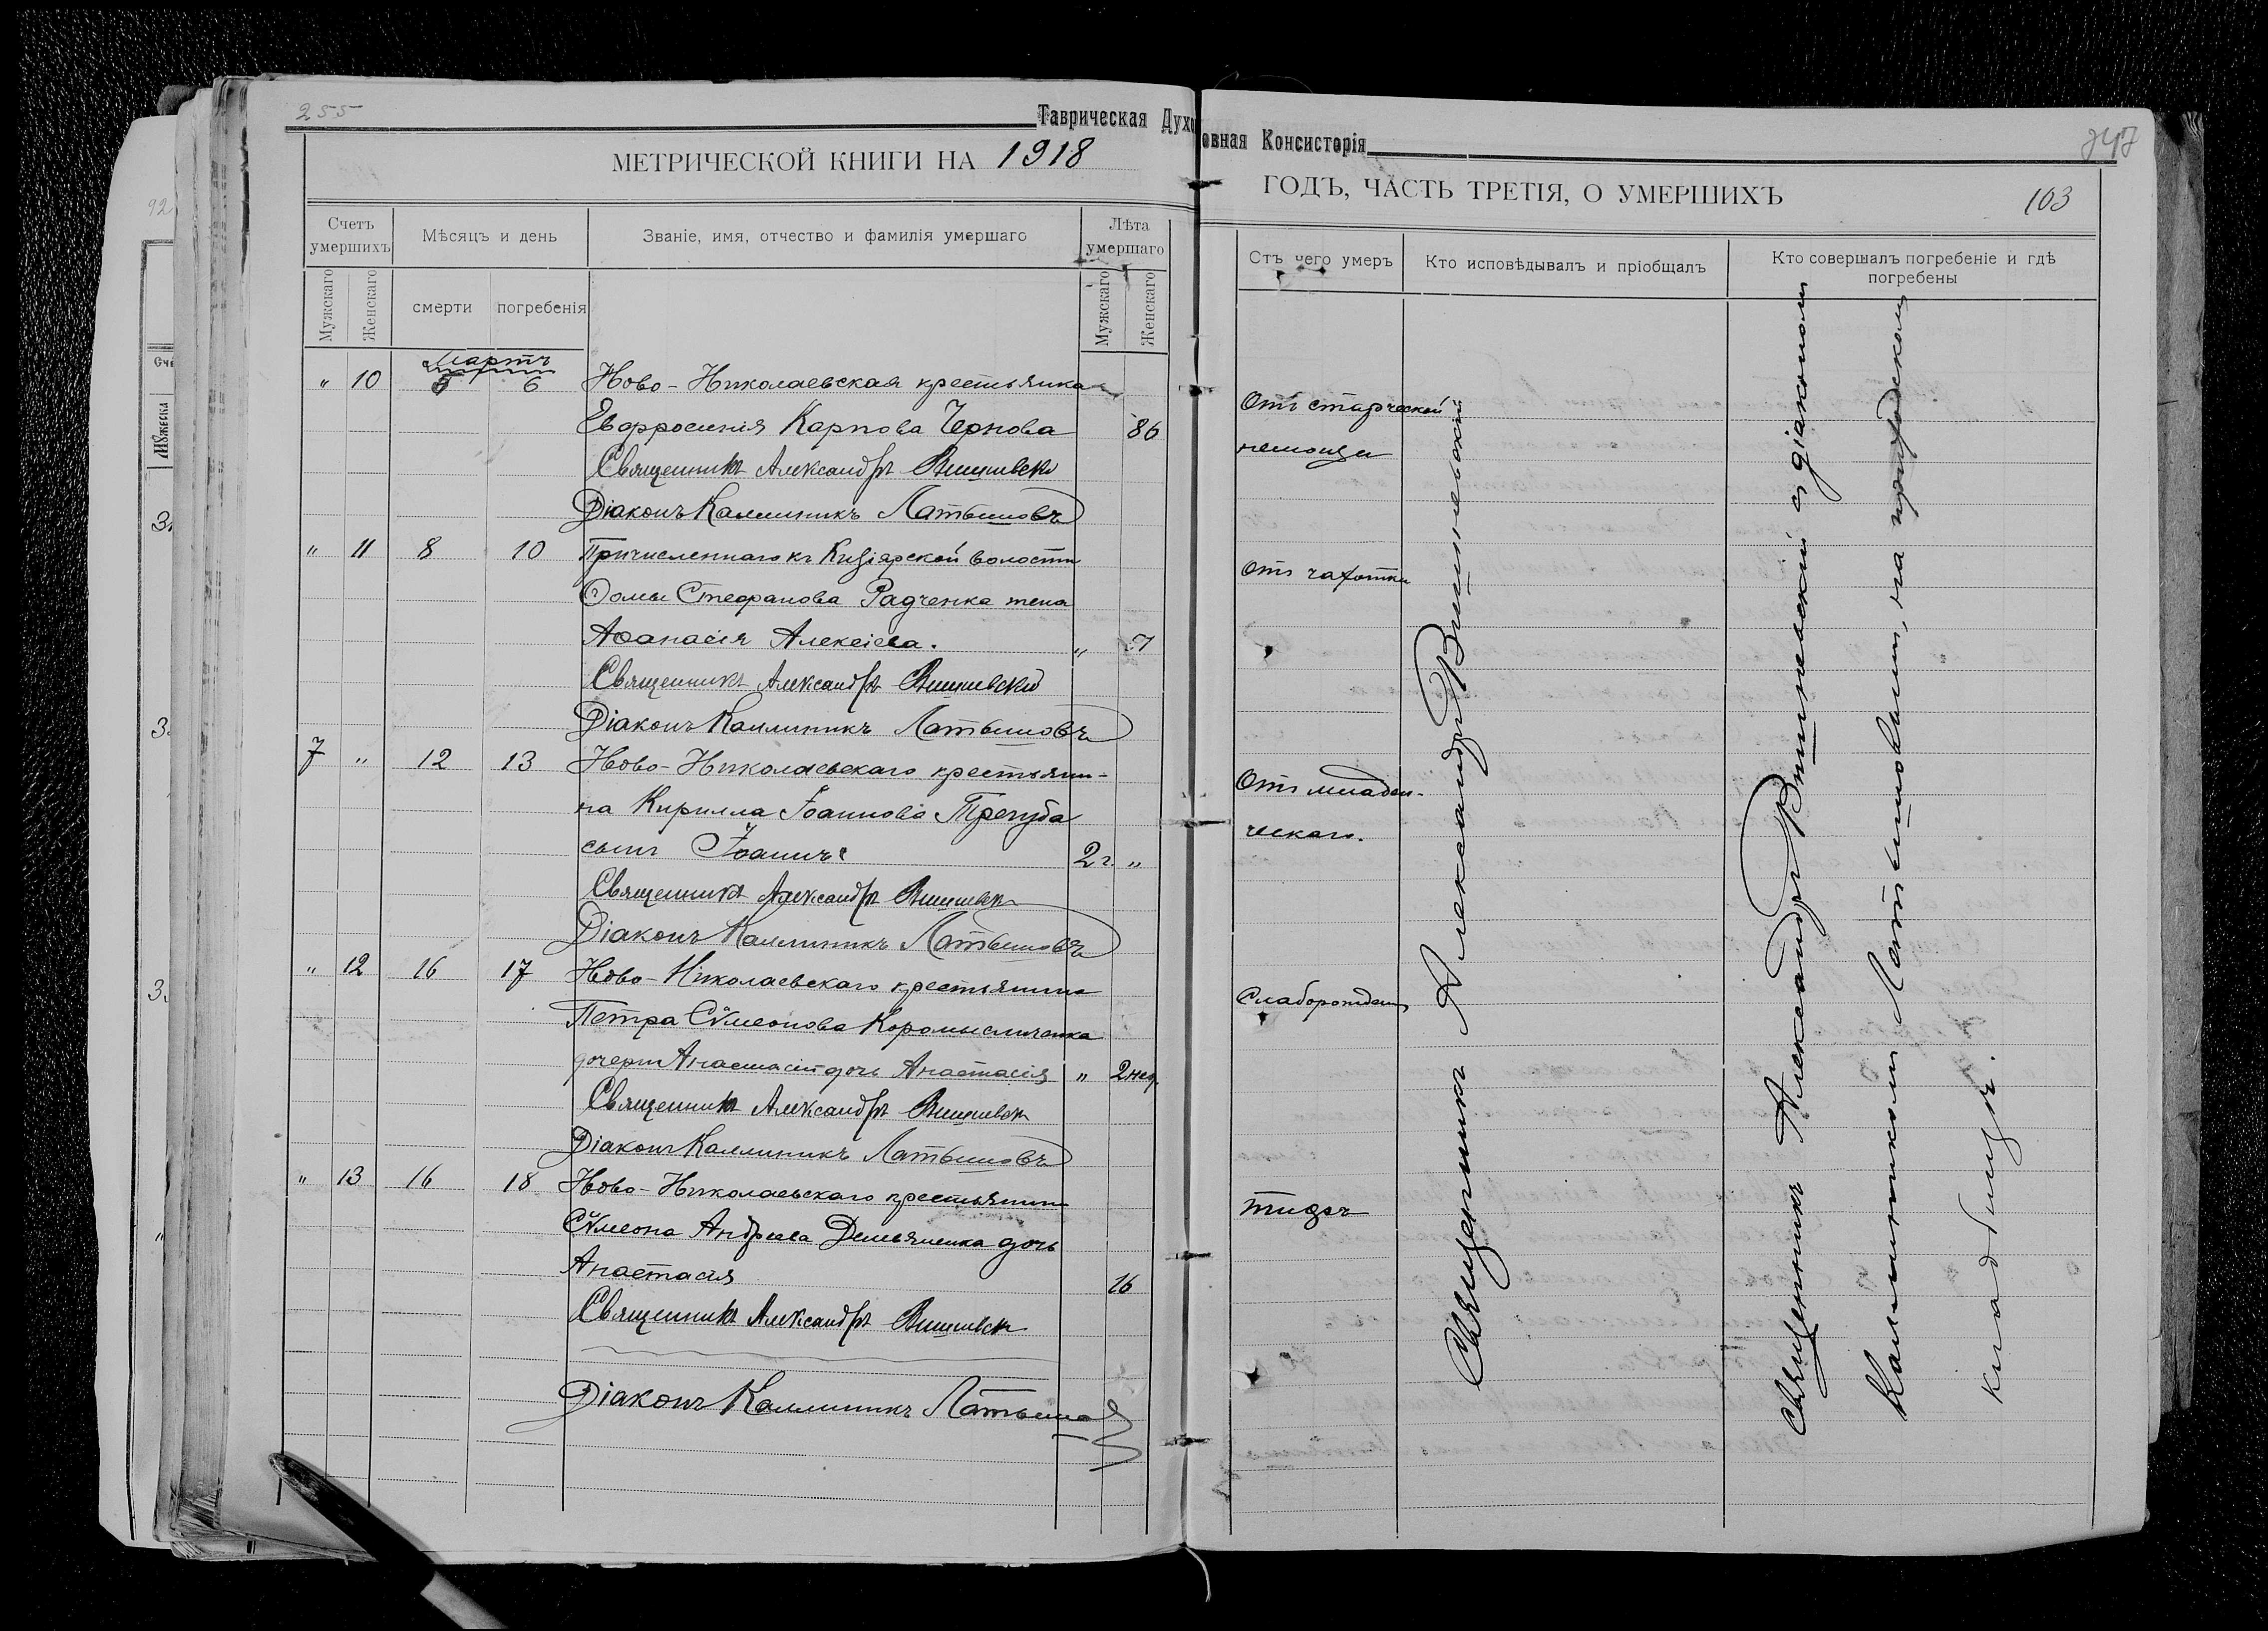 255
Таврическая Духовная Консисторія
247
МЕТРИЧЕСКОЙ КНИГИ НА 1918 ГОДЪ, ЧАСТЬ ТРЕТІЯ, О УМЕРШИХЪ
103
Счетъ умершихъ
Мѣсяцъ и день
Званіе, имя, отчество и фамилія умершаго
Лѣта умершаго
Отъ чего умеръ
Кто исповѣдывалъ и пріобщалъ
Кто совершалъ погребеніе и гдѣ погребены
Мужскаго
Женскаго
смерти
погребенія
Мужскаго
Женскаго
Мартъ
" 10 5 6 Ново-Николаевская крестьянка
Евфросинія Карпова Чернова 86
Отъ старческой
немощи
Священникъ Александръ Вишневскі
Діаконъ Каллиникъ Латышовъ
" 11 8 10 Причисленнаго къ Кизіярской волости
Ѳомы Стефанова Радченка жена
Аѳанасія Алексіева. "
Отъ чахотки
Священникъ Александръ Вишневскій
Діаконъ Каллиникъ Латышовъ
7 " 12 13 Ново-Николаевскаго крестьяни-
на Кирилла Іоаннова Трегуба
сынъ Іоаннъ 2 г. "
Отъ младен-
ческаго.
Священникъ Александръ Вишневск
Діаконъ Каллиникъ Латышовъ
" 12 16 17 Ново-Николаевскаго крестьянина
Петра Сѵмеонова Коромысличенка
дочери Анастасіи дочь Анастасія " 2 нед.
Слаборожден
Священникъ Александръ Вишневск
Діаконъ Каллиникъ Латышовъ
" 13 16 18 Ново-Николаевскаго крестьянина
Сѵмеона Андреева Демьяненка дочь
Анастасія 16
тифъ
Священникъ Александръ Вишневск
Діаконъ Каллиникъ Латышов
Священникъ Александръ Вишневскій
Священникъ Александръ Вишневскій съ діакономъ
Каллиникомъ Латышовымъ, на приходскомъ
кладбищѣ.
92